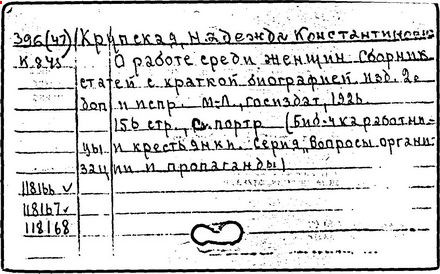 396(47) Крупская, Надежда Константиновна
К.843 О работе среди женщин. Сборник
статей с краткой биографией. Изд. 2е
доп и испр. М-Л, Госиздат, 1926
156 стр., с. портр (Биб-чка работни-
цы и крестьянки. Серия „Вопросы органи-
зации и пропаганды)
118166 ✓
118167 ✓
118168